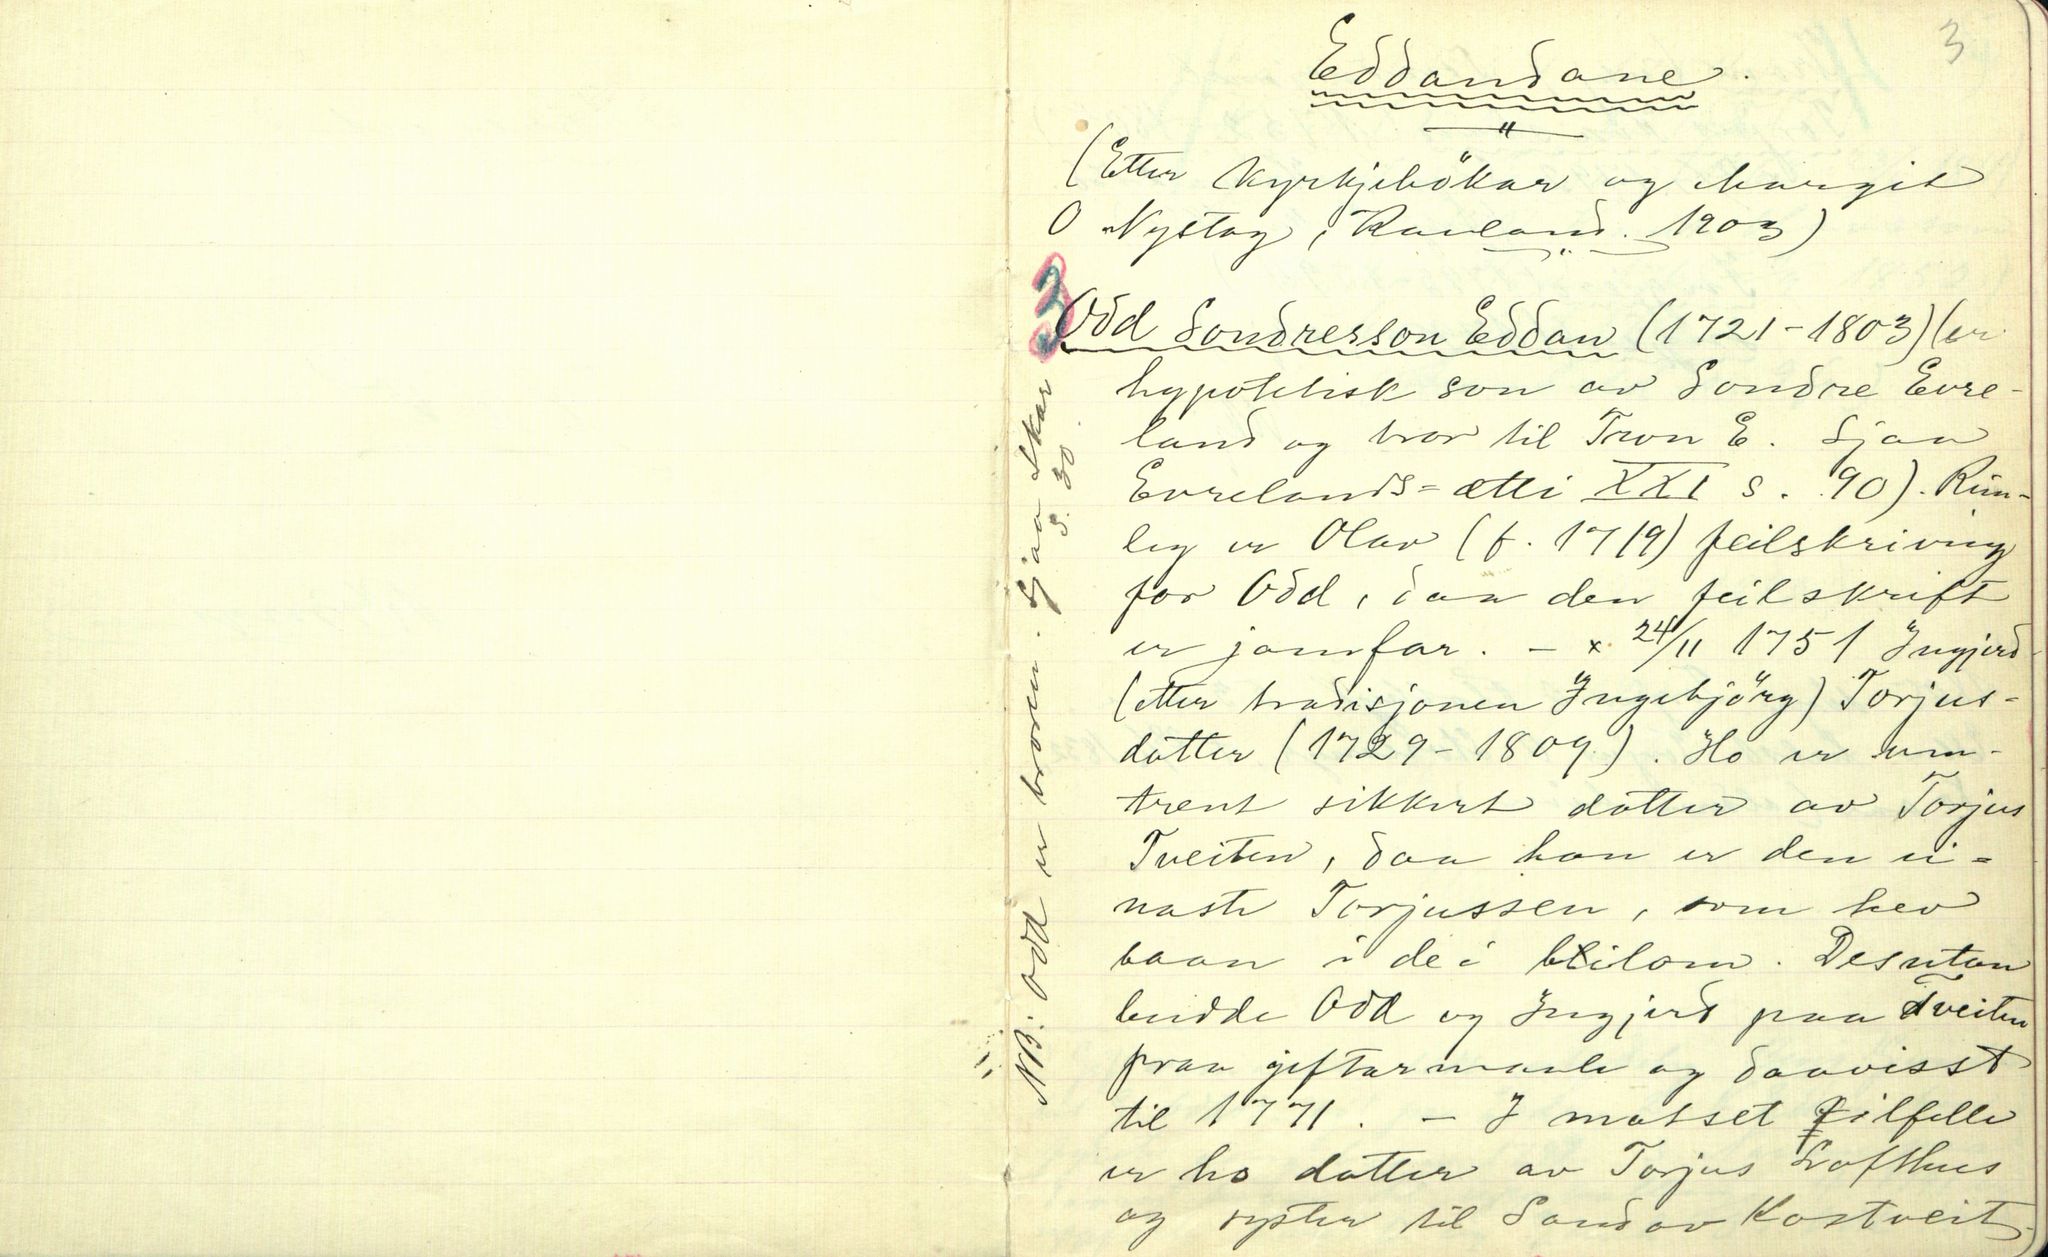 3
Eddandane.
(Etter Kyrkjebökar og Margit
O Nystog, Rauland. 1903)
3
Odd Sondresson Eddan (1721-1803) (er
hypotetisk son av Sondre Evre-
land og bror til Tron E. Sjaa
Evrelands=ætti XXI s. 90). Rim-
leg er Olav (f. 1719) feilskriving
for Odd, daa den feilskrift
er jamfar. - x 24/11 1751 Ingjerd
(etter tradisjonen Ingebjörg) Torjus-
dotter (1729-1809). Ho er um-
trent sikkert dotter av Torjus
Tveiten, daa han er den ei=
naste Torjussen, som hev
baan i dei bilom. Desutan
budde Odd og Ingjerd paa Tveiten
fraa giftarmaale og daavisst
til 1771. - I motset tilfelle
er ho dotter av Torjus Lofthus
og syster til Sondov Kostveit
NB: Odd er broren. Sjaa Skar
S. 30.